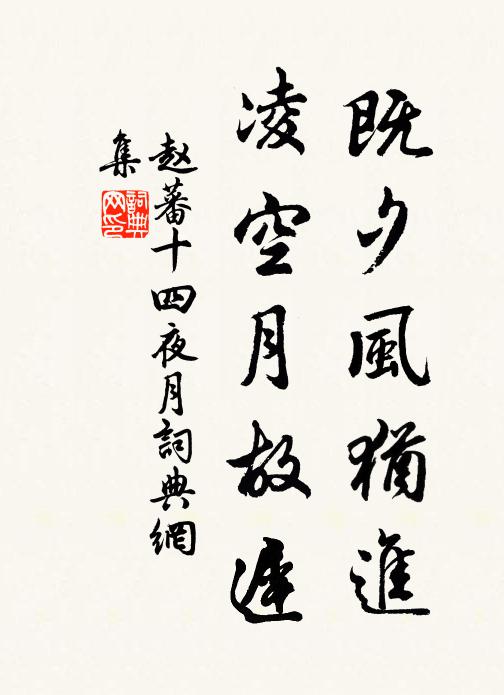 既夕風猶進
凌空月故遲
赵蕃十四夜月詞典網
集
詞典
网印